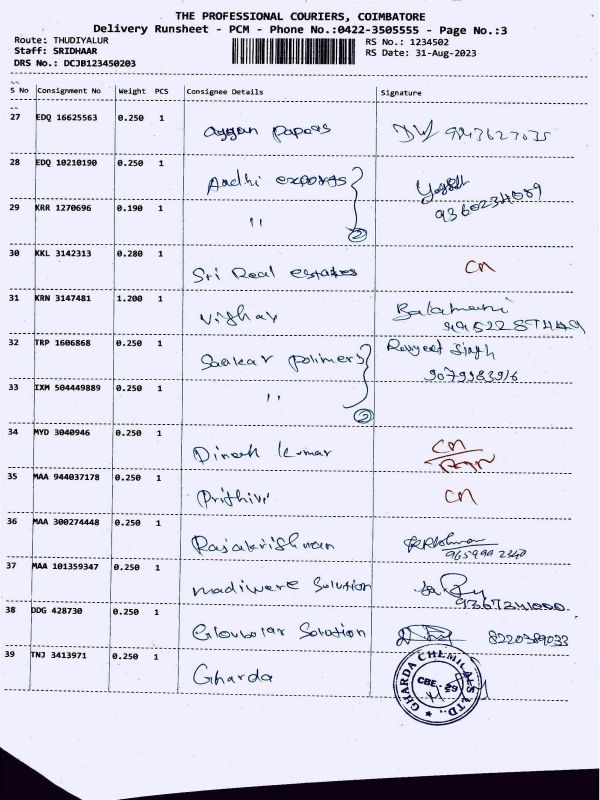 THE PROFESSIONAL COURIERS, COIMBATORE
Delivery Runsheet - PCM - Phone No.:0422-3505555 - Page No.:3
Route: THUDIYALUR
RS No.: 1234502
Staff: SRIDHAAR
RS Date: 31-Aug-2023
DRS No.: DCJB123450203
S No Consignment No Weight PCS Consignee Details Signature
27 EDQ 16625563 0.250 1 papers
28 EDQ 10210190 0.250 1 Aadhi exports 9360234089
29 KRR 1270696 0.190 1 " 2
30 KKL 3142313 0.280 1 Sri Real estates CN
31 KRN 3147481 1.200 1 Vishal Balamani
32 TRP 1606868 0.250 1 polimers Singh
9079983916
33 IXM 504449889 0.250 1 " 2
34 MYD 3040946 0.250 1 Dinesh kumar CN
35 MAA 944037178 0.250 1 Prithivi CN
36 MAA 300274448 0.250 1 Rajakrishnan
9659992340
37 MAA 101359347 0.250 1 madiware Solution
38 DDG 428730 0.250 1 Solution 8220389033
39 TNJ 3413971 0.250 1 Gharda
GHARDA CHEMICALS LTD.,
CBE - 29